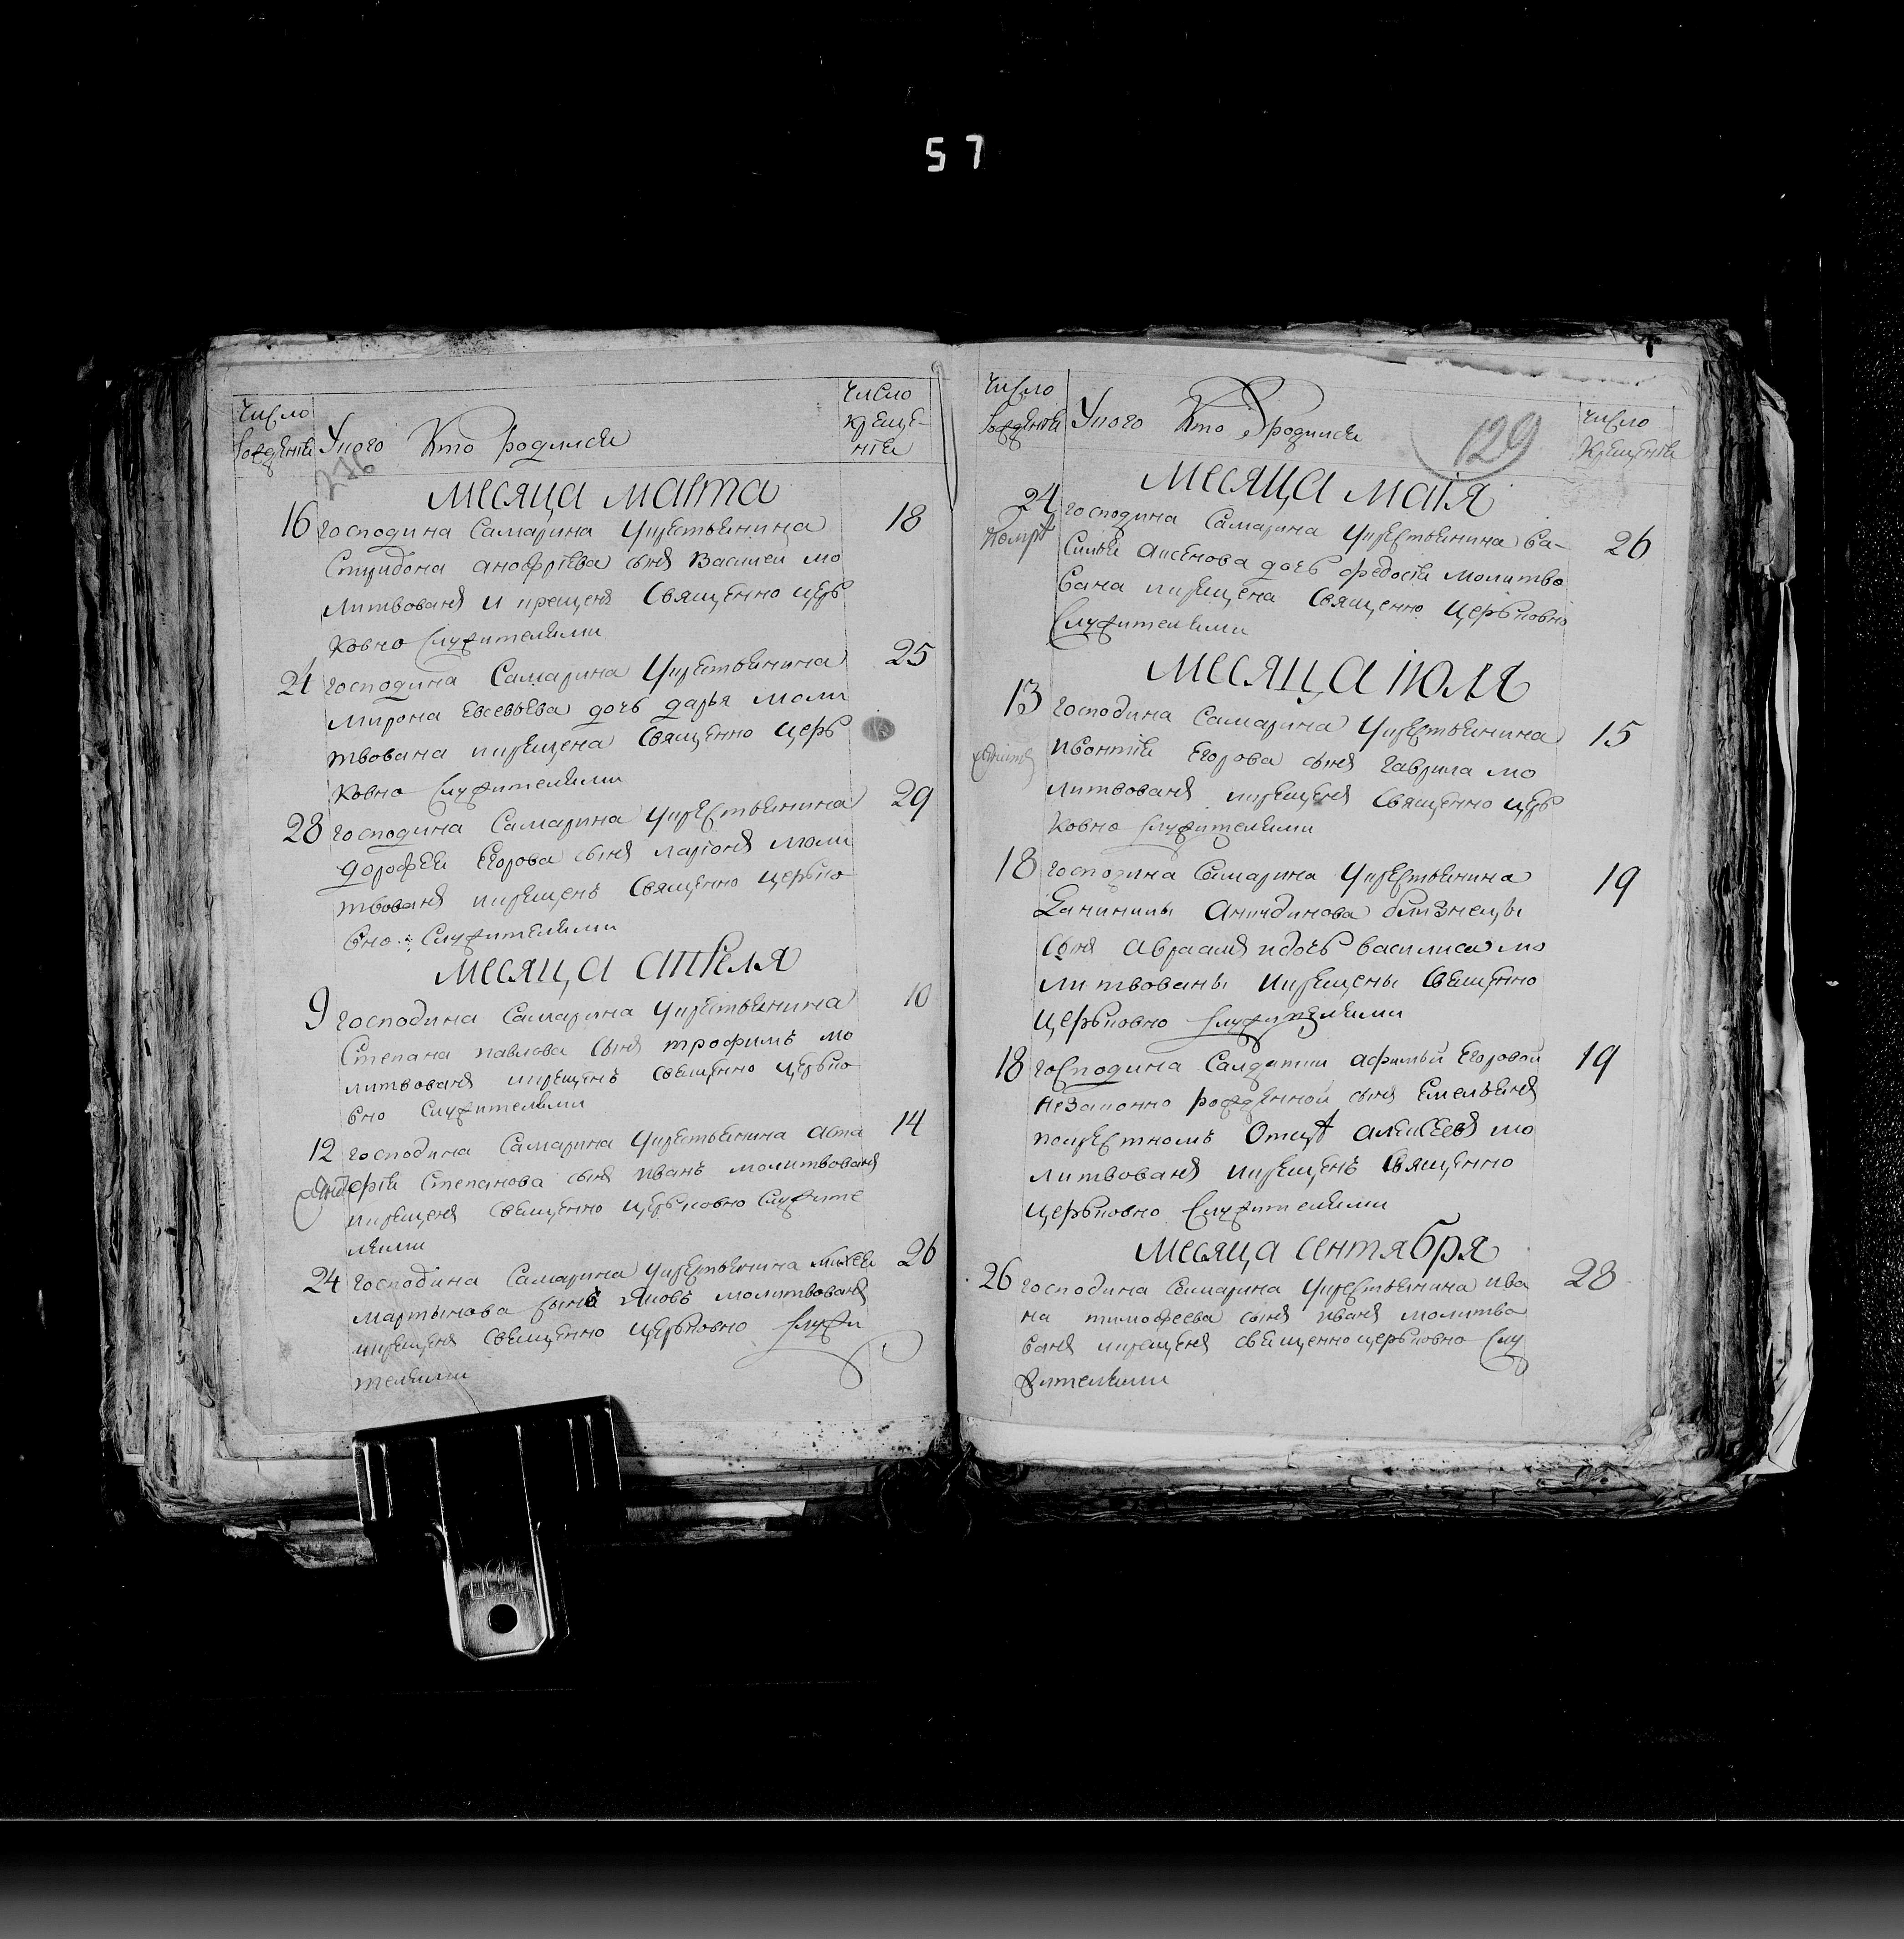 57
Число рождения
У кого Кто родился
Число крещения
236
месяца марта
16 господина Самарина У крестьянина 18
Спиридона анофріева сынъ Василеи мо
литвованъ и крещенъ Священно церь
ковно служителями
24 господина Самарина У крестьянина 25
мирона Евсевьева дочь дарья моли
твована и крещена Священно церь
ковно служителями
28 господина Самарина у крестьянина 29
дорофея Егорова сынъ ларіонъ моли
твованъ и крещенъ Священно церько
вно служителями
месяца апреля
9 господина Самарина У крестьянина 10
Степана павлова сынъ трофимъ мо
литвованъ и крещенъ Священно церько
вно служителями
12 господина Самарина У крестьянина аста 14
фія Степанова сынъ иванъ молитвованъ
и крещенъ Священно церьковно служите
лями
24 господина Самарина У крестьянина михея 26
мартынова сынъ Яковъ молитвованъ
и крещенъ Священно церьковно служи
телями
Число рождения
У кого Кто родился
Число крещения
129
месяца маія
24 господина Самарина У крестьянина Ва- 26
помре
силья аксенова дочь федосья молитво
вана и крещена Священно церьковно
служителями
месяца июля
13 господина Самарина У крестьянина 15
Егорова сынъ гаврила мо
литвованъ и крещенъ Священно церь
ковно служителями
18 господина Самарина У крестьянина 19
Данилы близнецы
сынъ авраамъ и дочь василиса мо
литвованы и крещены Священно
церьковно служителями
18 господина Салдатки афимьи Егоровой 19
незаконно рожденной сынъ Емельянъ
по крестномъ Отце алексеевъ мо
литвованъ и крещенъ Священно
церьковно служителями
месяца сентября
26 господина Самарина У крестьянина ива 28
на тимофеева сынъ иванъ молитво
ванъ и крещенъ священно церьковно слу
жителями